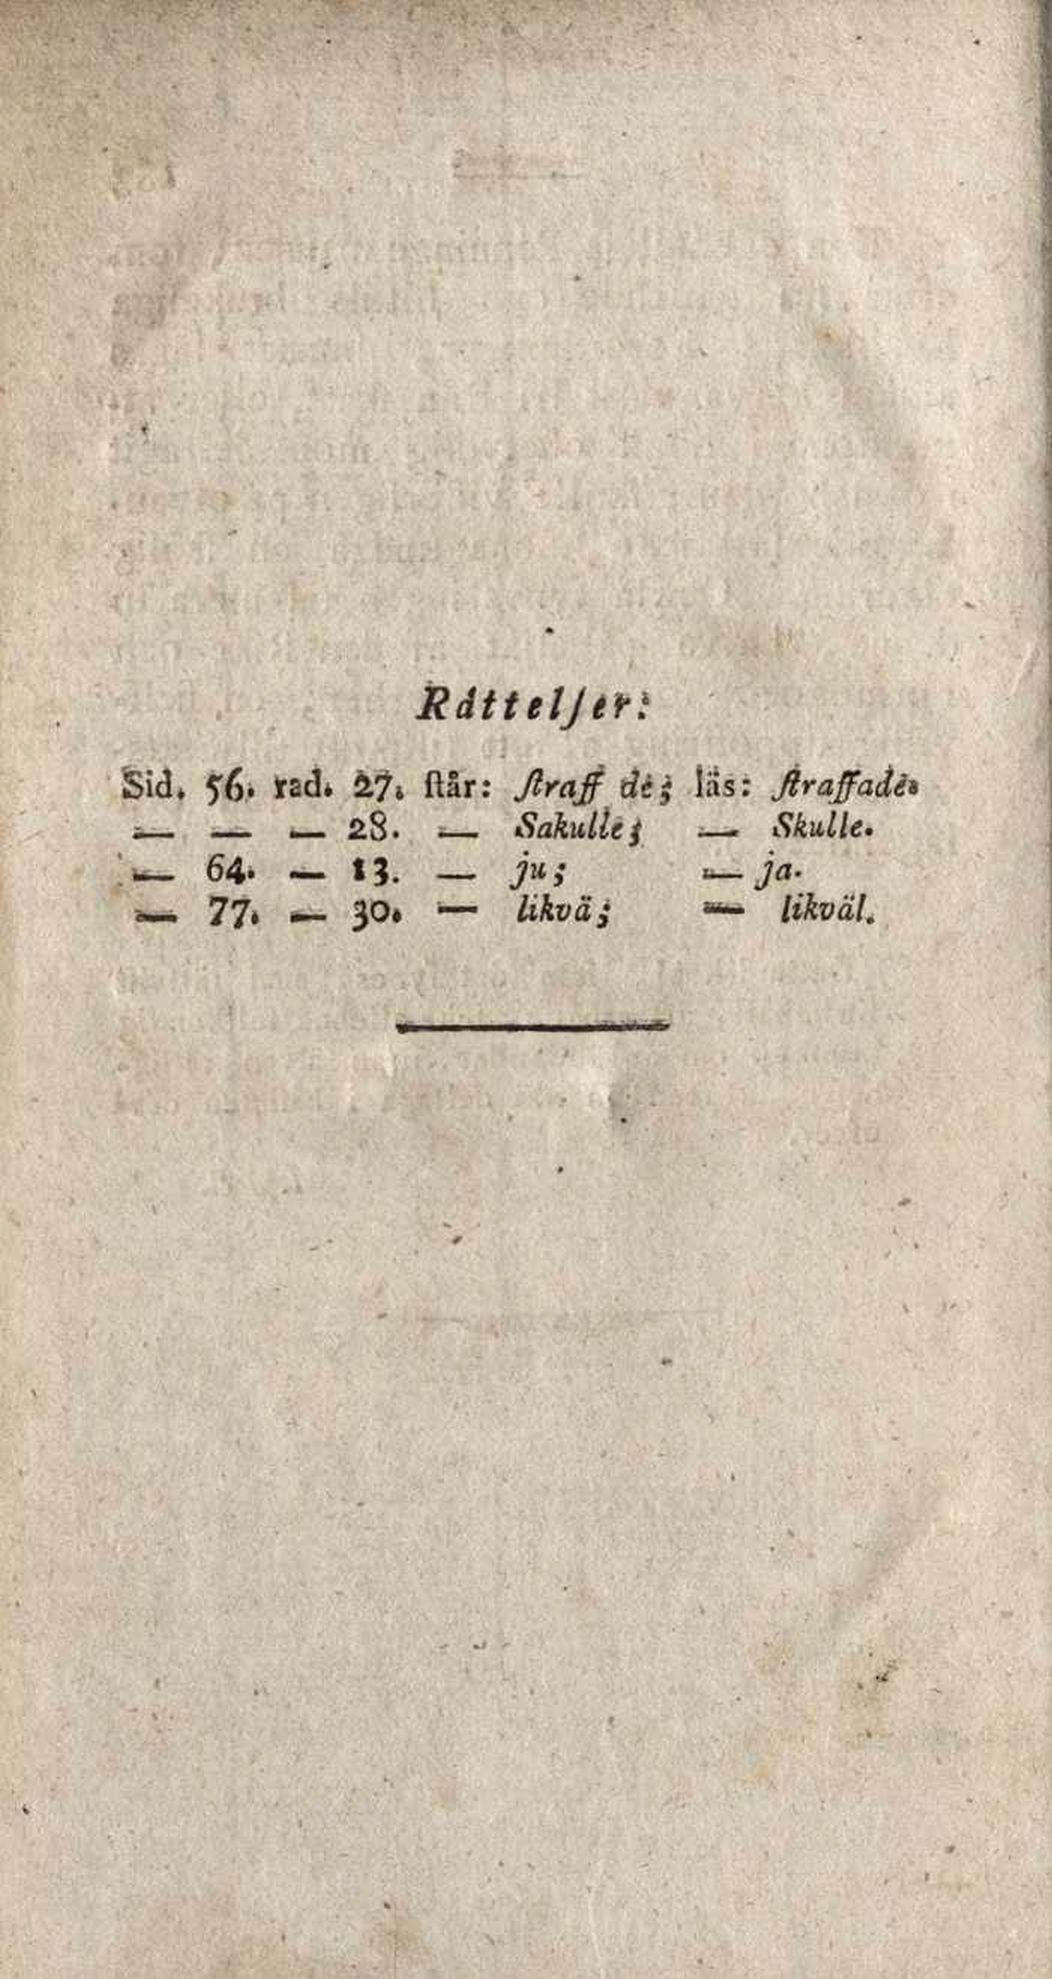 Rättelſer:
Sid. 56. rad. 27. ſtår: ſtraff de; läs: ſtraffade.
— — — 28. — Sakulle; — Skulle.
— 64. — 13. — ju; — ja.
— 77. — 30. — likvä; — likväl.